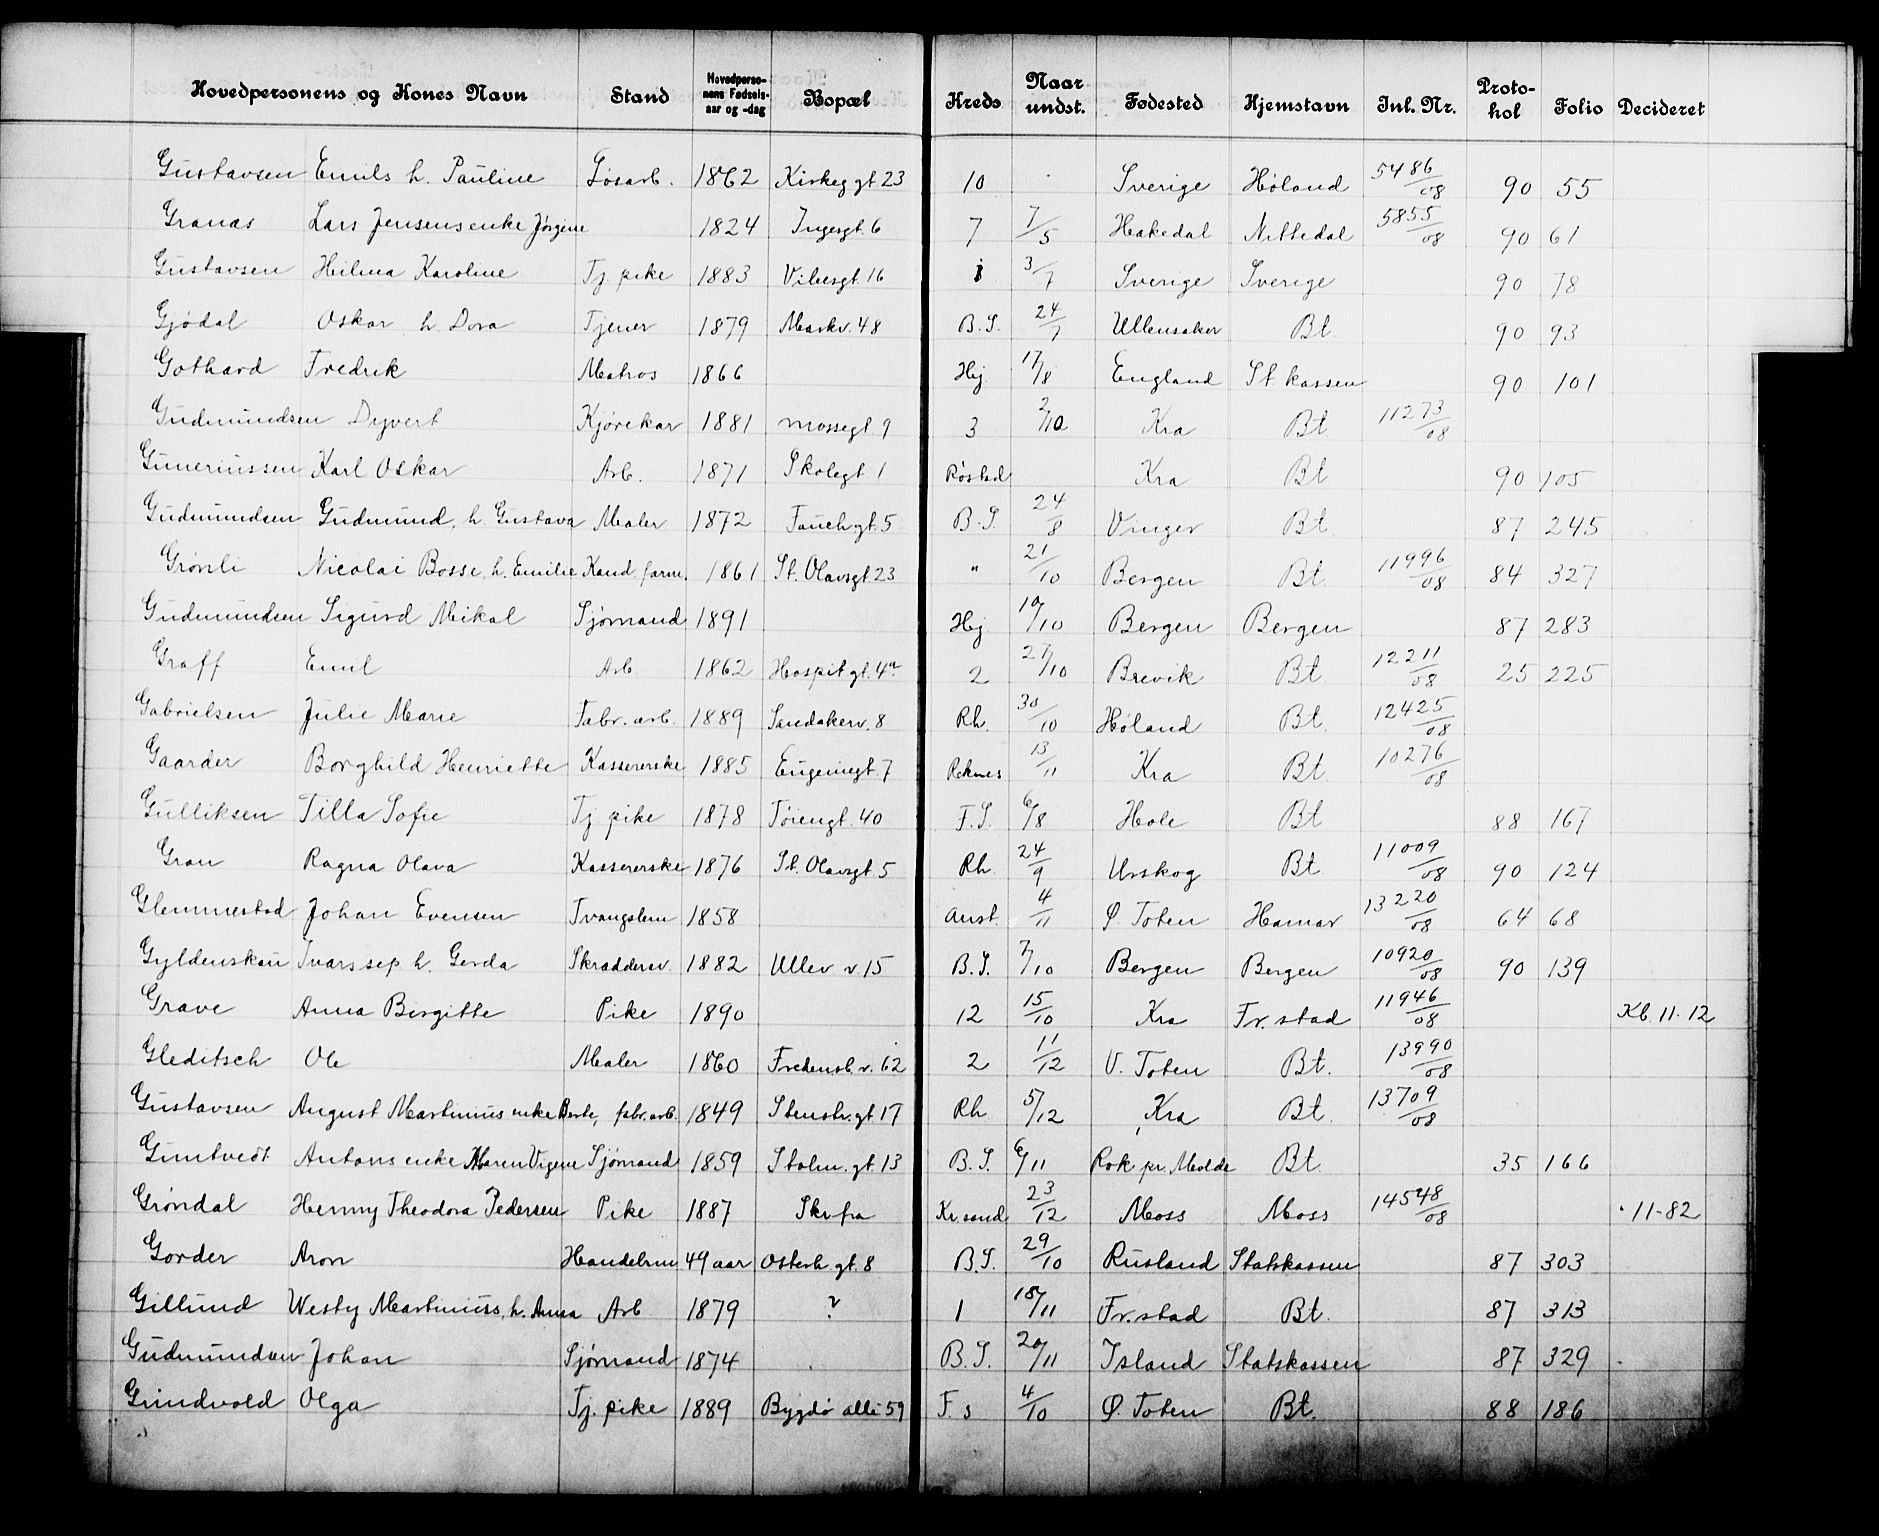 Hovedpersonens og Kones Navn | Stand | Hovedpersonens Fødselsaar og -dag | Bopæl | Kreds | Naar undst. | Fødested | Hjemstavn | Inl. Nr. | Protokol | Folio | Decideret
Gustavsen Emils h. Pauline | Løsarb. | 1862 | Kirkeggt 23 | 10 | | Sverige | Høland | 5486/08 | 90 | 55
Granas Lars Jensens enke Jørgine | | 1824 | Ingesgt 6 | 7 | 7/5 | Hakedal | Nittedal | 5855/08 | 90 | 61
Gustavsen Hilma Karoline | Tj. pike | 1883 | Vibesgt. 16 | 8 | 3/7 | Sverige | Sverige | | 90 | 78
Gjødal Oskar h. Dora | Tjener | 1879 | Markv. 48 | B.S. | 24/7 | Ullensaker | Bt. | | 90 | 93
Gothard Fredrik | Matros | 1866 | | Hej | 17/8 | England | St. kassen | | 90 | 101
Gudmundsen Dyvert | Kjørekar | 1881 | Mossegt 9 | 3 | 2/10 | Kra | Bt | 11273/08
Guneriussen Karl Oskar | Arb. | 1871 | Skolegt 1 | Røstad | | Kra | Bt | | 90 | 105
Gudmundsen Gudmund, h. Gustava | Maler | 1872 | Fauchgt. 5 | B.S. | 24/8 | Vinger | Bt. | | 87 | 245
Grønli Nicolai Bosse, h. Emilie | Kand. farm. | 1861 | St. Olavsgt 23 | " | 21/10 | Bergen | Bt. | 11996/08 | 84 | 327
Gudmundsen Sigurd Mikal | Sjømand | 1891 | | Hej | 19/10 | Bergen | Bergen | | 87 | 283
Graff Emil | Arb. | 1862 | Hospit.gt. 4a | 2 | 27/10 | Brevik | Bt. | 12211/08 | 25 | 225
Gabrielsen Julie Marie | Fabr. arb. | 1889 | Sandakerv. 8 | Rh. | 30/10 | Høland | Bt. | 12425/08
Gaarder Borghild Henriette | Kassererske | 1885 | Eugeniegt. 7 | Reknes | 13/11 | Kra | Bt | 10276/08
Gulliksen Tilla Sofie | Tj. pike | 1878 | Tøiengt. 40 | F.S. | 6/8 | Hole | Bt | | 88 | 167
Gran Ragna Olava | Kassererske | 1876 | St. Olavsgt. 5 | Rh. | 24/9 | Urskog | Bt. | 11009/08 | 90 | 124
Glemmestad Johan Evensen | Tvangslem | 1858 | | Anst. | 4/11 | Ø. Toten | Hamar | 13220/08 | 64 | 68
Gyldenskau Ivars sep h. Gerda | Skradderv. | 1882 | Ullev. v. 15 | B.S. | 7/10 | Bergen | Bergen | 10920/08 | 90 | 139
Grave Anna Birgitte | Pike | 1890 | | 12 | 15/10 | Kra | Fr. stad | 11946/08 | | | Kb. 11-12
Gleditsch Ole | Maler | 1860 | Fredensb. v. 62 | 2 | 11/12 | V. Toten | Bt. | 13990/08
Gustavsen August Martinius enke Berte, | fabr. arb. | 1849 | Stensb. gt. 17 | Rh. | 5/12 | Kra | Bt. | 13709/08
Guntvedt Antons enke Maren Vigene | Sjømand | 1859 | Stolm. gt. 13 | B.S. | 6/11 | Rok pr. Molde | Bt. | | 35 | 166
Grøndal Henny Theodora Pedersen | Pike | 1887 | Skr fra | Kr. sand | 23/12 | Moss | Moss | 14548/08 | | | 11-82
Gorder Aron | Handelsm | 49 aar | Osterh. gt. 8 | B.S. | 29/10 | Rusland | Statskassen | | 87 | 303
Gillund Westy Martinius, h. Anna | Arb | 1879 | ? | 1 | 18/11 | Fr. stad | Bt. | | 87 | 313
Gudmundsen Johan | Sjømand | 1874 | | B.S. | 20/11 | Island | Statskassen | | 87 | 329
Grindvold Olga | Tj. pike | 1889 | Bygdø alle 59 | F.s | 4/10 | Ø. Toten | Bt. | | 88 | 186